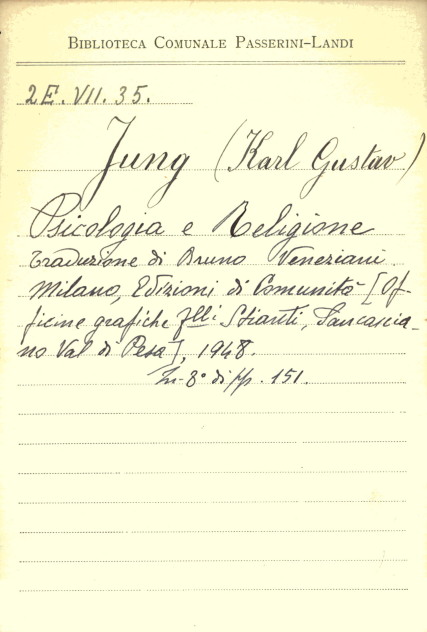 BIBLIOTECA COMUNALE PASSERINI-LANDI
2E. VII. 35.
Jung (Karl Gustav)
Psicologia e Religione
Traduzione di Bruno Veneziani.
Milano, Edizioni di Comunità [Of-
ficine grafiche F.lli Stianti, Sancascia-
no Val di Pesa], 1948.
In-8° di pp. 151.